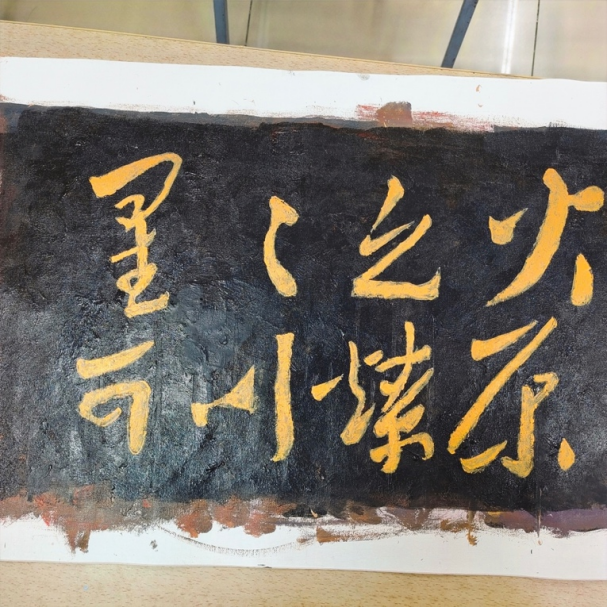 星〻之火
可以燎原